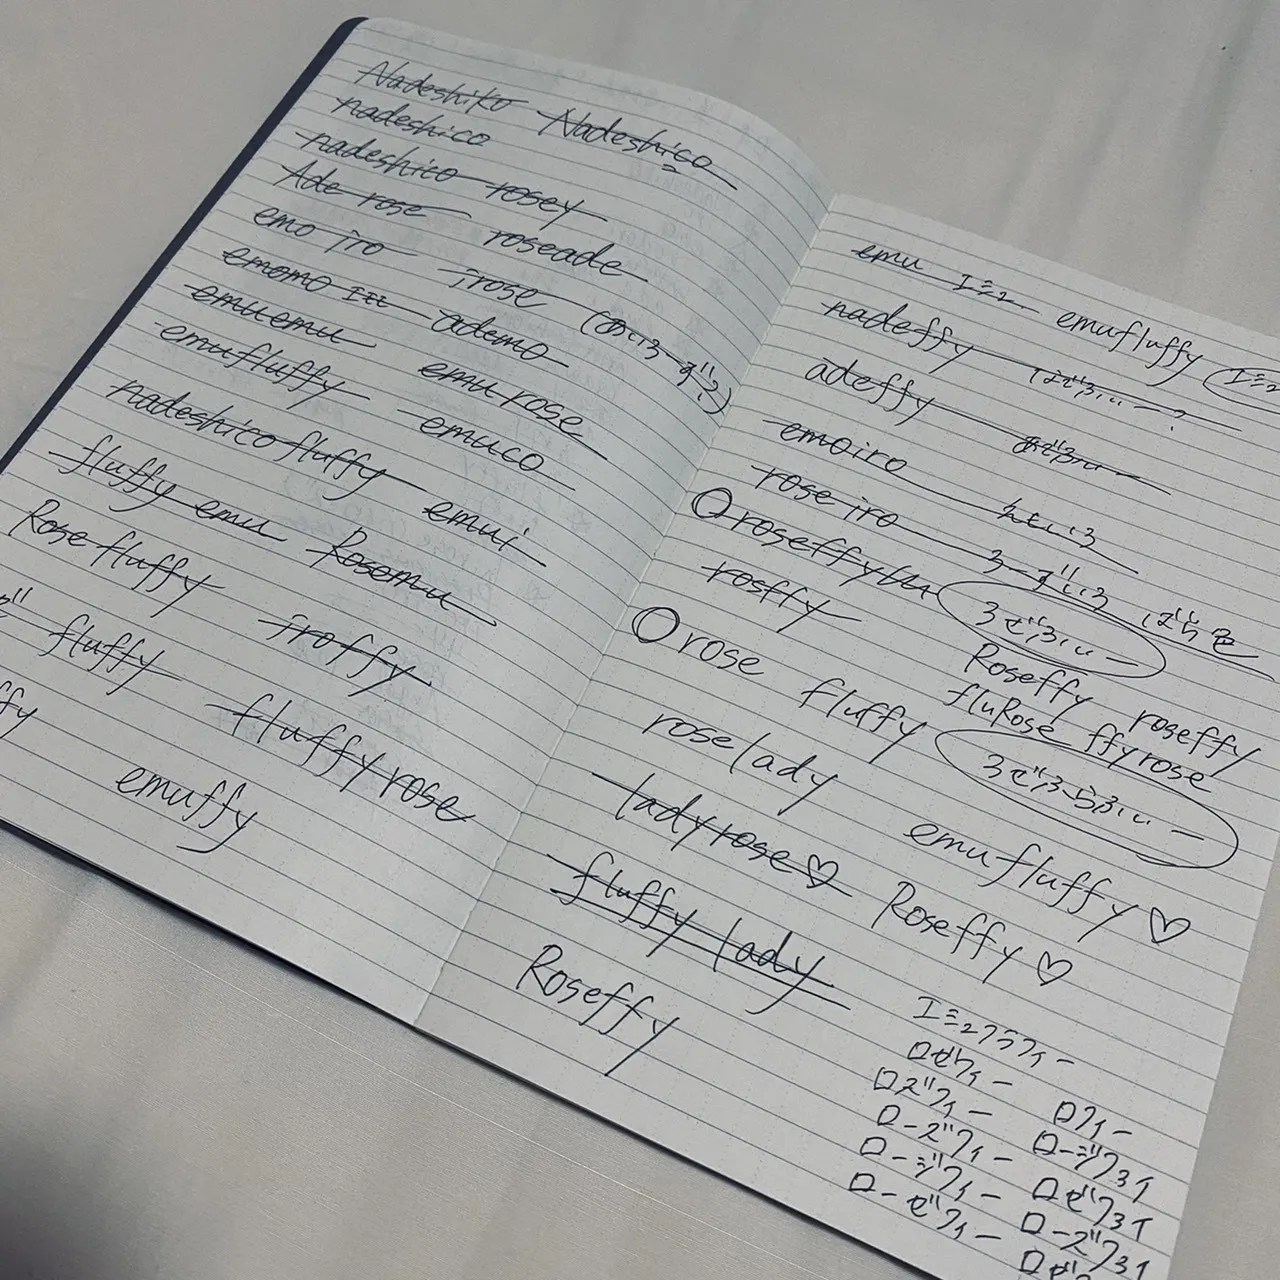 Nadeshiko Nadeshico
nadeshico
nadeshico rosey
Ade rose roseade
emo iro irose (あいろーず)
emomo エミ ademo
emuemu emurose
emufluffy emuco
nadeshico fluffy emui
fluffy emu Rosemu
Rose fluffy iroffy
fluffy fluffyrose
ffy
emuffy
emu エミュ emufluffy エミュ
nadeffy なでふぃー?
adeffy あでふぃー
emoiro えもいろ
rose iro ろーずいろ ばら色
○roseffy ろぜふぃー
rosffy Roseffy roseffy
○rose fluffy fluRose ffyrose
roselady ろぜふらふぃー
ladyrose♡ emufluffy♡
fluffy lady Roseffy♡
Roseffy
エミュフラフィー
ロゼフィー
ロズフィー ロフィー
ローズフィー ロージフヨイ
ロージフィー ロゼフヨイ
ローゼフィー ローズフヨイ
ロゼ